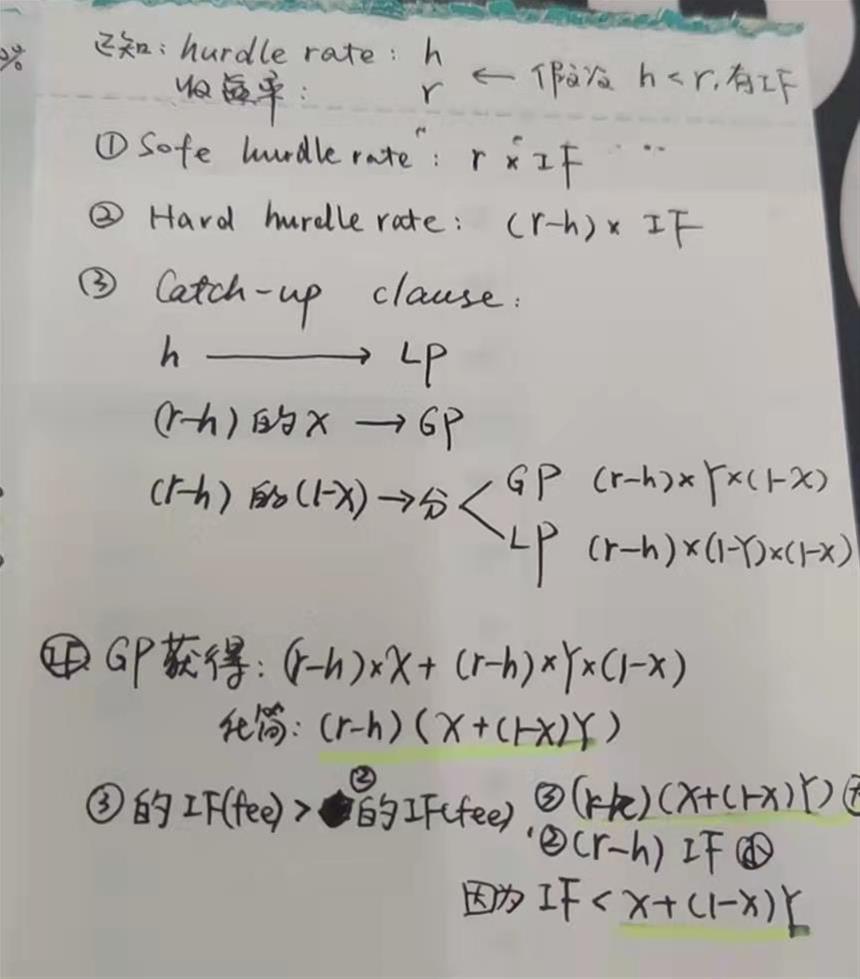 %
已知: hurdle rate: h
收益率: r ← 假设 h<r, 有IF
① Sofe hurdle rate": r × IF
② Hard hurdle rate: (r-h) × IF
③ Catch-up clause:
h → LP
(r-h) 的 X → GP
(r-h) 的 (1-X) → 分 < GP (r-h)×Y×(1-X)
LP (r-h)×(1-Y)×(1-X)
IF GP获得: (r-h)×X + (r-h)×Y×(1-X)
化简: (r-h)(X+(1-X)Y)
③的IF(fee) > ②的IF(fee) ③(r-h)(X+(1-X)Y)
②(r-h) IF
因为 IF < X+(1-X)Y